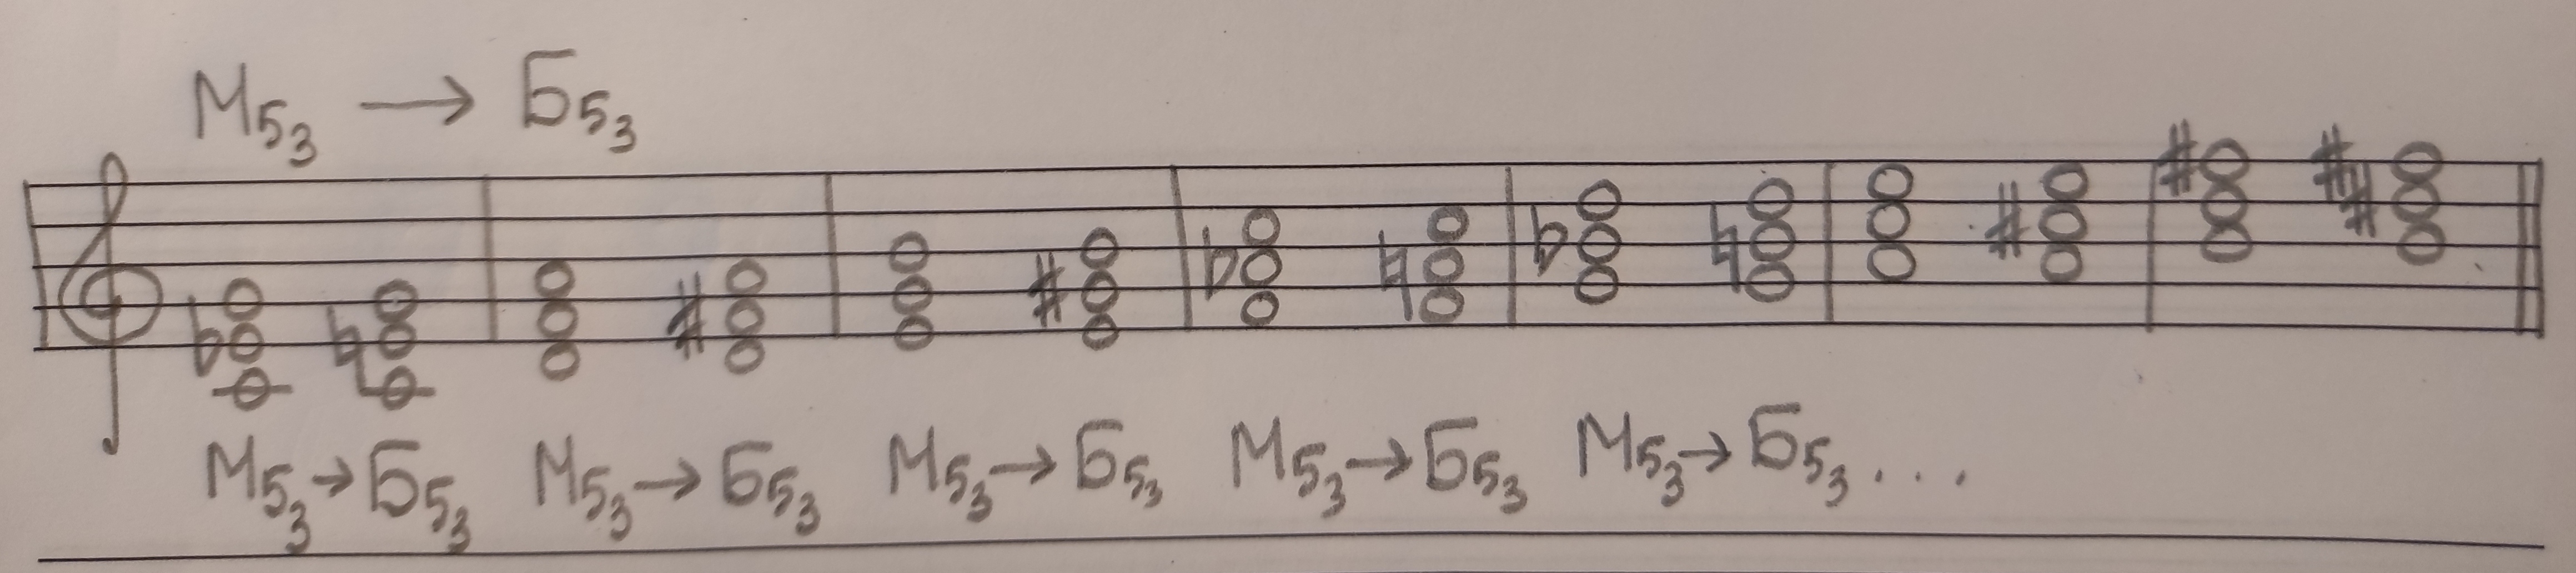 М53 → Б53
М53 → Б53 М53 → Б53 М53 → Б53 М53 → Б53 М53 → Б53 . . .